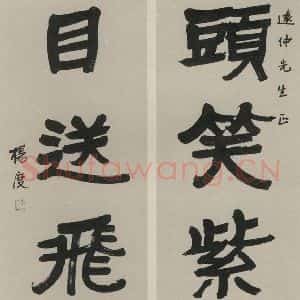 達仲先生正
頭笑紫
目送飛
楊度
Shufawang.CN